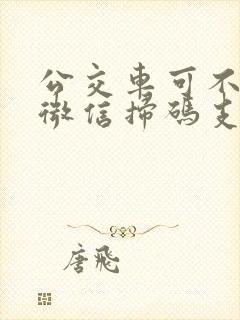 公交車可不
微信掃碼支
唐飛